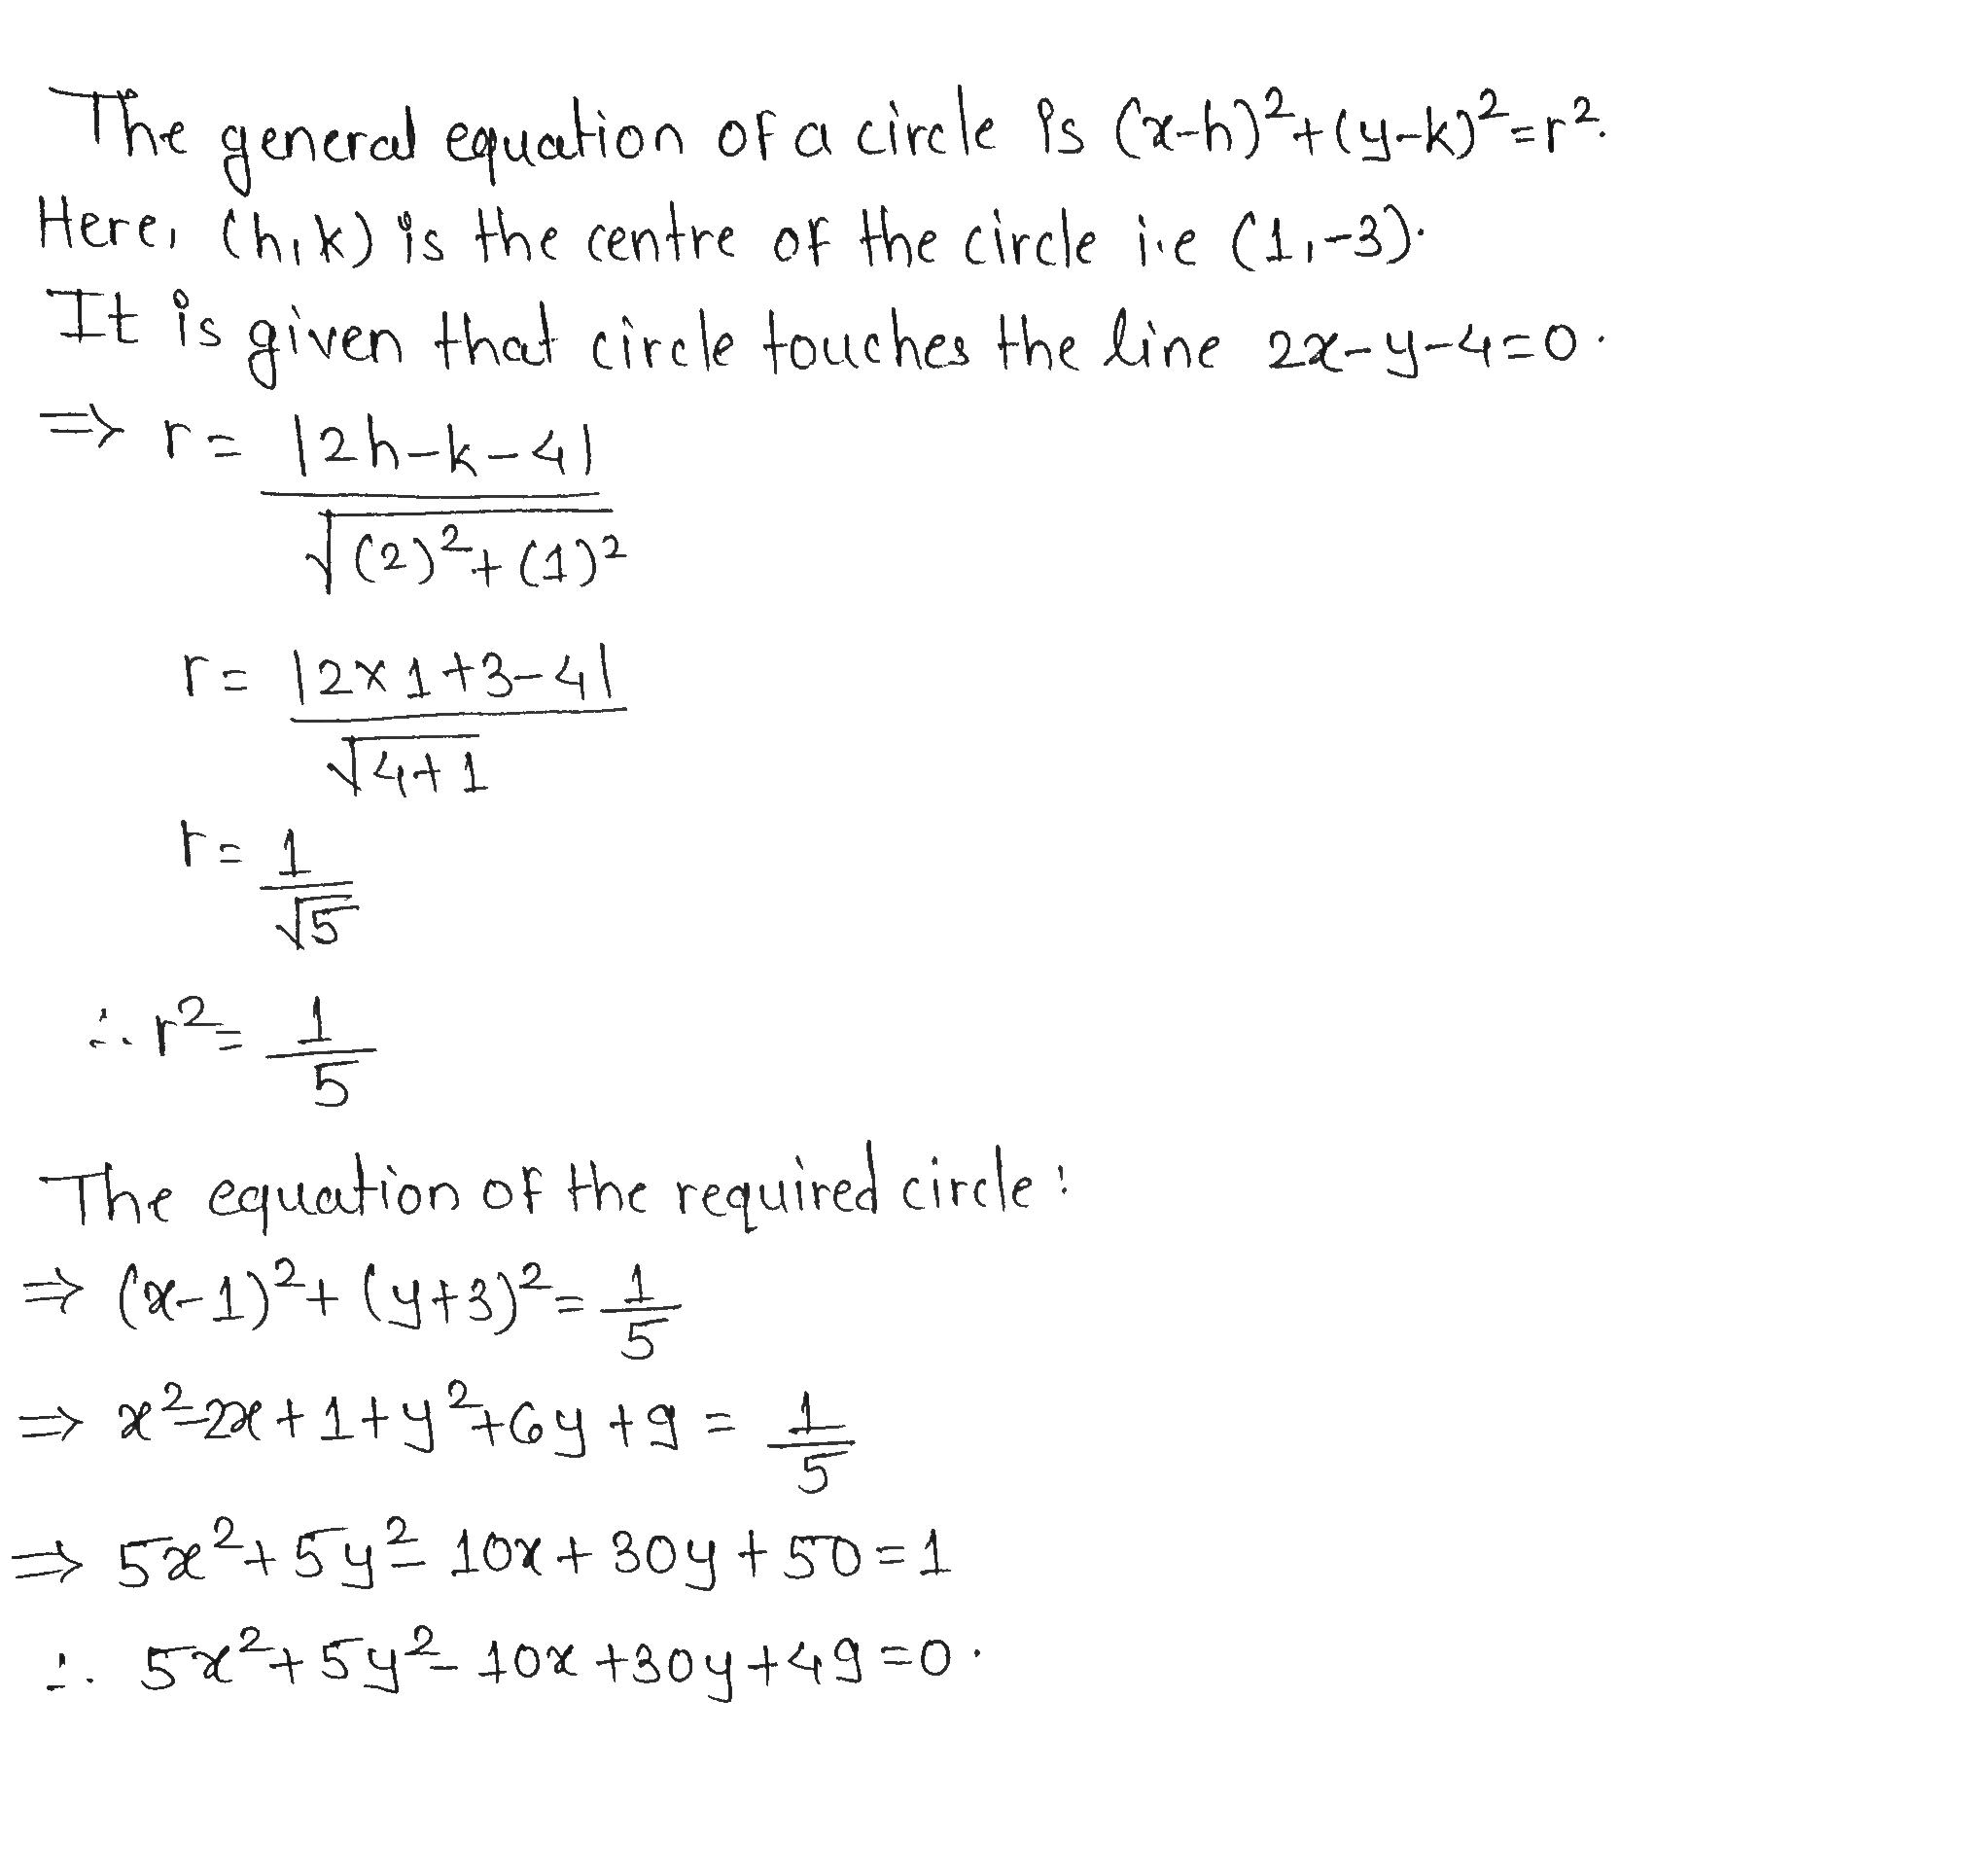 The general equation of a circle is (x-h)²+(y-k)²=r².
Here, (h,k) is the centre of the circle i.e (1,-3).
It is given that circle touches the line 2x-y-4=0.
⇒ r= |2h-k-4|
√(2)²+(1)²
r= |2×1+3-4|
√4+1
r= 1
√5
∴ r²= 1
5
The equation of the required circle:
⇒ (x-1)²+(y+3)²= 1/5
⇒ x²-2x+1+y²+6y+9 = 1/5
⇒ 5x²+5y²-10x+30y+50=1
∴ 5x²+5y²-10x+30y+49=0.